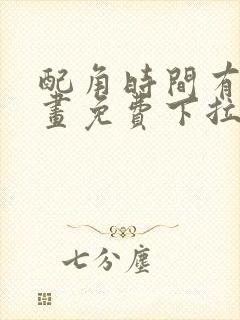 配角時間有
畫免費下拉
七分塵